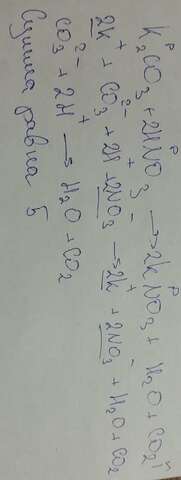 K₂CO₃ + 2HNO₃ → 2KNO₃ + H₂O + CO₂↑
2K⁺ + CO₃²⁻ + 2H⁺ + 2NO₃⁻ → 2K⁺ + 2NO₃⁻ + H₂O + CO₂
CO₃²⁻ + 2H⁺ → H₂O + CO₂
Сумма равна 5